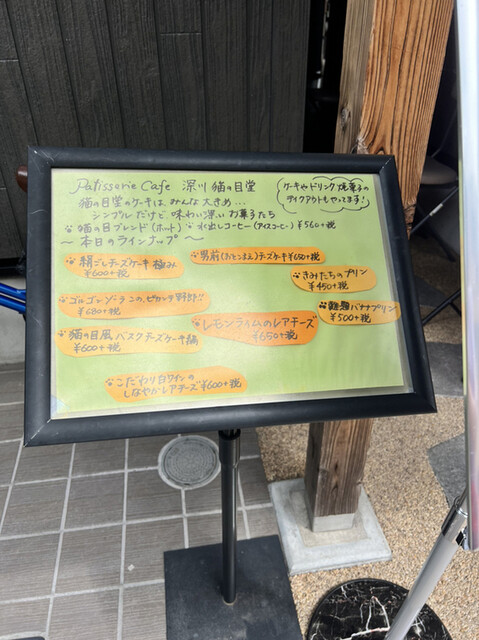 Patisserie Cafe 深川 猫の目堂
猫の目堂のケーキは、みんな大きめ…
シンプルだけど、味わい深いお菓子たち
猫の目ブレンド(ホット) 水出しコーヒー(アイスコーヒー) ¥560+税
〜本日のラインナップ〜
ケーキやドリンク、焼菓子の
テイクアウトもやってます!
絹ごしチーズケーキ 極み
¥600+税
男前(おとこまえ)チーズケーキ¥650+税
きみたちのプリン
¥450+税
ゴルゴンゾーラ この、ピカンテ野郎!!
¥680+税
麵麭バナナプリン
¥500+税
猫の目風 バスクチーズケーキ
¥600+税
レモンライムのレアチーズ
¥650+税
こだわり白ワインの
しなやかレアチーズ ¥600+税